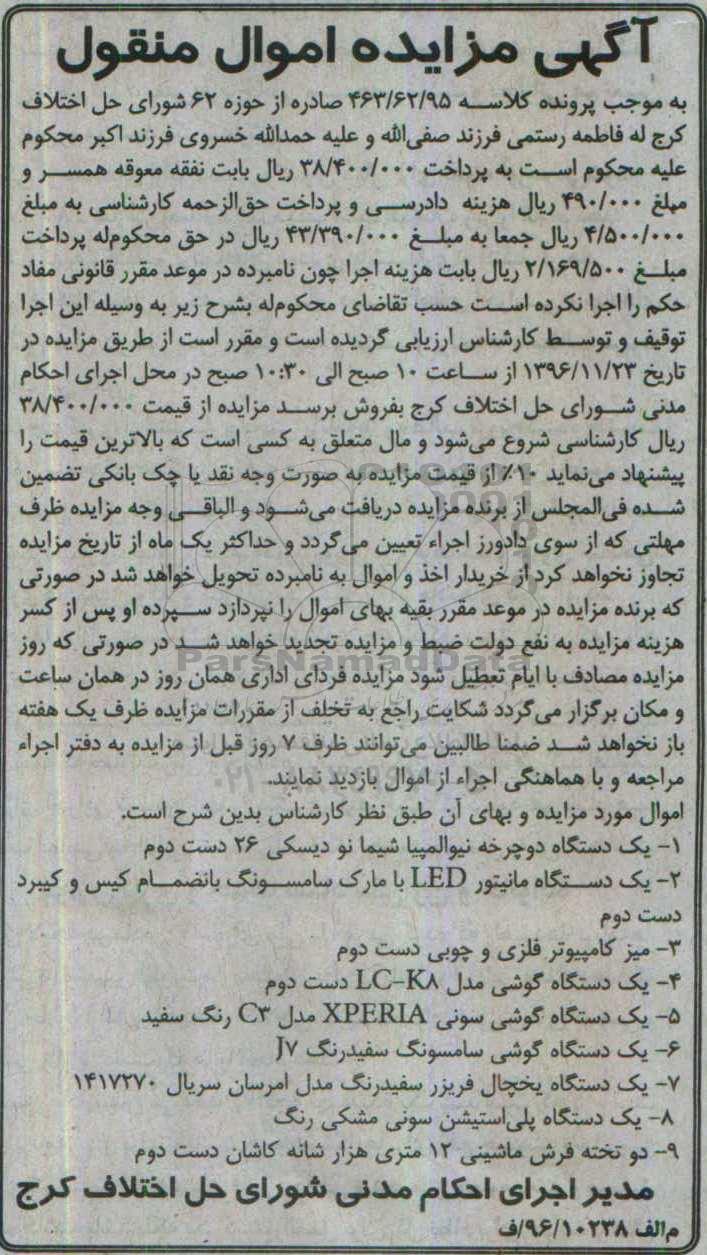 آگهی مزایده اموال منقول
به موجب پرونده کلاسه ۴۶۳/۶۲/۹۵ صادره از حوزه ۶۲ شورای حل اختلاف
کرج له فاطمه رستمی فرزند صفی‌الله و علیه حمدالله خسروی فرزند اکبر محکوم
علیه محکوم است به پرداخت ۳۸/۴۰۰/۰۰۰ ریال بابت نفقه معوقه همسر و
مبلغ ۴۹۰/۰۰۰ ریال هزینه دادرسی و پرداخت حق‌الزحمه کارشناسی به مبلغ
۴/۵۰۰/۰۰۰ ریال جمعا به مبلغ ۴۳/۳۹۰/۰۰۰ ریال در حق محکوم‌له پرداخت
مبلغ ۲/۱۶۹/۵۰۰ ریال بابت هزینه اجرا چون نامبرده در موعد مقرر قانونی مفاد
حکم را اجرا نکرده است حسب تقاضای محکوم‌له بشرح زیر به وسیله این اجرا
توقیف و توسط کارشناس ارزیابی گردیده است و مقرر است از طریق مزایده در
تاریخ ۱۳۹۶/۱۱/۲۳ از ساعت ۱۰ صبح الی ۱۰:۳۰ صبح در محل اجرای احکام
مدنی شورای حل اختلاف کرج بفروش برسد مزایده از قیمت ۳۸/۴۰۰/۰۰۰
ریال کارشناسی شروع می‌شود و مال متعلق به کسی است که بالاترین قیمت را
پیشنهاد می‌نماید ۱۰٪ از قیمت مزایده به صورت وجه نقد یا چک بانکی تضمین
شده فی‌المجلس از برنده مزایده دریافت می‌شود و الباقی وجه مزایده ظرف
مهلتی که از سوی دادورز اجراء تعیین می‌گردد و حداکثر یک ماه از تاریخ مزایده
تجاوز نخواهد کرد از خریدار اخذ و اموال به نامبرده تحویل خواهد شد در صورتی
که برنده مزایده در موعد مقرر بقیه بهای اموال را نپردازد سپرده او پس از کسر
هزینه مزایده به نفع دولت ضبط و مزایده تجدید خواهد شد در صورتی که روز
مزایده مصادف با ایام تعطیل شود مزایده فردای اداری همان روز در همان ساعت
و مکان برگزار می‌گردد شکایت راجع به تخلف از مقررات مزایده ظرف یک هفته
باز نخواهد شد ضمنا طالبین می‌توانند ظرف ۷ روز قبل از مزایده به دفتر اجراء
مراجعه و با هماهنگی اجراء از اموال بازدید نمایند.
اموال مورد مزایده و بهای آن طبق نظر کارشناس بدین شرح است.
۱- یک دستگاه دوچرخه نیوالمپیا شیما نو دیسکی ۲۶ دست دوم
۲- یک دستگاه مانیتور LED با مارک سامسونگ بانضمام کیس و کیبرد
دست دوم
۳- میز کامپیوتر فلزی و چوبی دست دوم
۴- یک دستگاه گوشی مدل LC-K۸ دست دوم
۵- یک دستگاه گوشی سونی XPERIA مدل C۳ رنگ سفید
۶- یک دستگاه گوشی سامسونگ سفیدرنگ J۷
۷- یک دستگاه یخچال فریزر سفیدرنگ مدل امرسان سریال ۱۴۱۷۲۷۰
۸- یک دستگاه پلی‌استیشن سونی مشکی رنگ
۹- دو تخته فرش ماشینی ۱۲ متری هزار شانه کاشان دست دوم
مدیر اجرای احکام مدنی شورای حل اختلاف کرج
م‌الف ۹۶/۱۰۲۳۸/ف
ParsNamadData